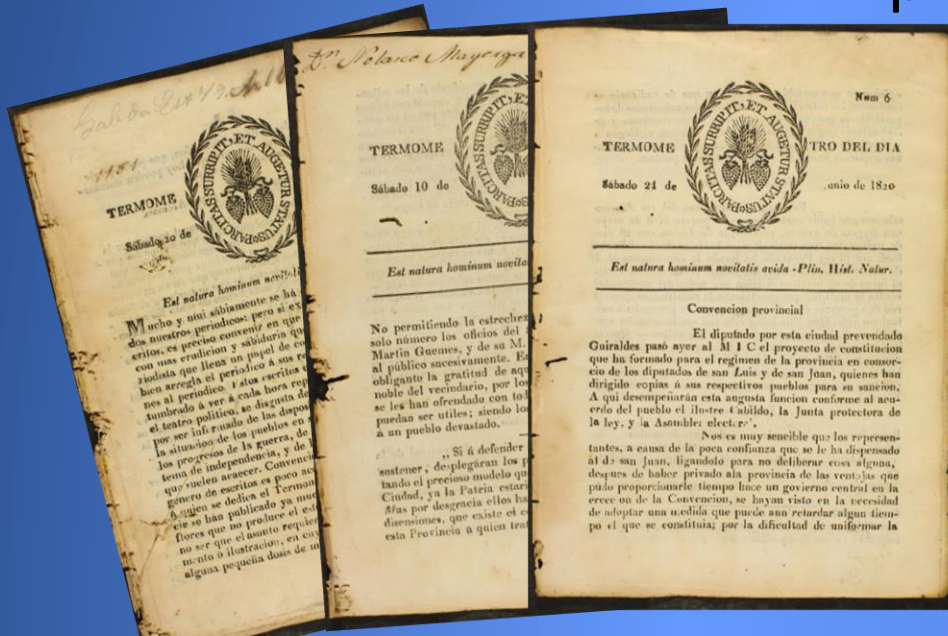 TERMOME
PARCITAS SURRIPIT, ET AUGETUR STATUS
Sábado 20 de
Est natura hominum
Mucho y mui sábiamente se há
dos nuestros periodicos: pero si
critos, es preciso convenir en que
con su erudicion y sabiduria
riodista que llena un papel de
bien arregla el periodico á sus
nes al periodico. Estos escritos
tumbrado á ver á cada hora
el teatro politico, se disgusta de
por ser informado de las
la situacion de los pueblos en
los progresos de la guerra, de
tema de independencia, y de
que suelen avacer.
género de escritos es poco
á quien se dedica el
cie se han publicado ya
flores que no produce el
no ser que el asunto
mento ó ilustracion, en
alguna pequeña dosis de
Dn. Nolasco Mayorga
TERMOME
Sábado 10 de
Est natura hominum
No permitiendo la estrechez
solo número los oficios del
Martin Guemes, y de su M.
al público sucesivamente.
obligante la gratitud de
noble del vecindario, por los
se les han ofrendado con
puedan ser utiles; siendo
á un pueblo devastado.
,, Si á defender
sostener, desplegáran los
tando el precioso modelo
Ciudad, ya la Patria
Mas por desgracia ellos
disensiones, que existe el
esta Provincia á quien
Num 6
TERMOME TRO DEL DIA
PARCITAS SURRIPIT, ET AUGETUR STATUS
Sábado 24 de unio de 1820
Est natura hominum novitatis avida -Plin. Hist. Natur.
Convencion provincial
El diputado por esta ciudad prevendado
Guiraldes pasó ayer al M I C el proyecto de constitucion
que ha formado para el regimen de la provincia en consor-
cio de los diputados de san Luis y de san Juan, quienes han
dirigido copias á sus respectivos pueblos para su sancion.
A qui desempeñarán esta augusta funcion conforme al acu-
erdo del pueblo el ilustre Cabildo, la Junta protectora de
la ley, y la Asamblea
Nos es muy sencible que los represen-
tantes, a causa de la poca confianza que se le ha dispensado
al de san Juan, ligandolo para no deliberar cosa alguna,
despues de haber privado ala provincia de las ventajas que
pudo proporcionarle tiempo hace un govierno central en la
ereccion de la Convencion, se hayan visto en la necesidad
de adoptar una medida que puede aun retardar algun tiem-
po el que se constituia; por la dificultad de uniformar la